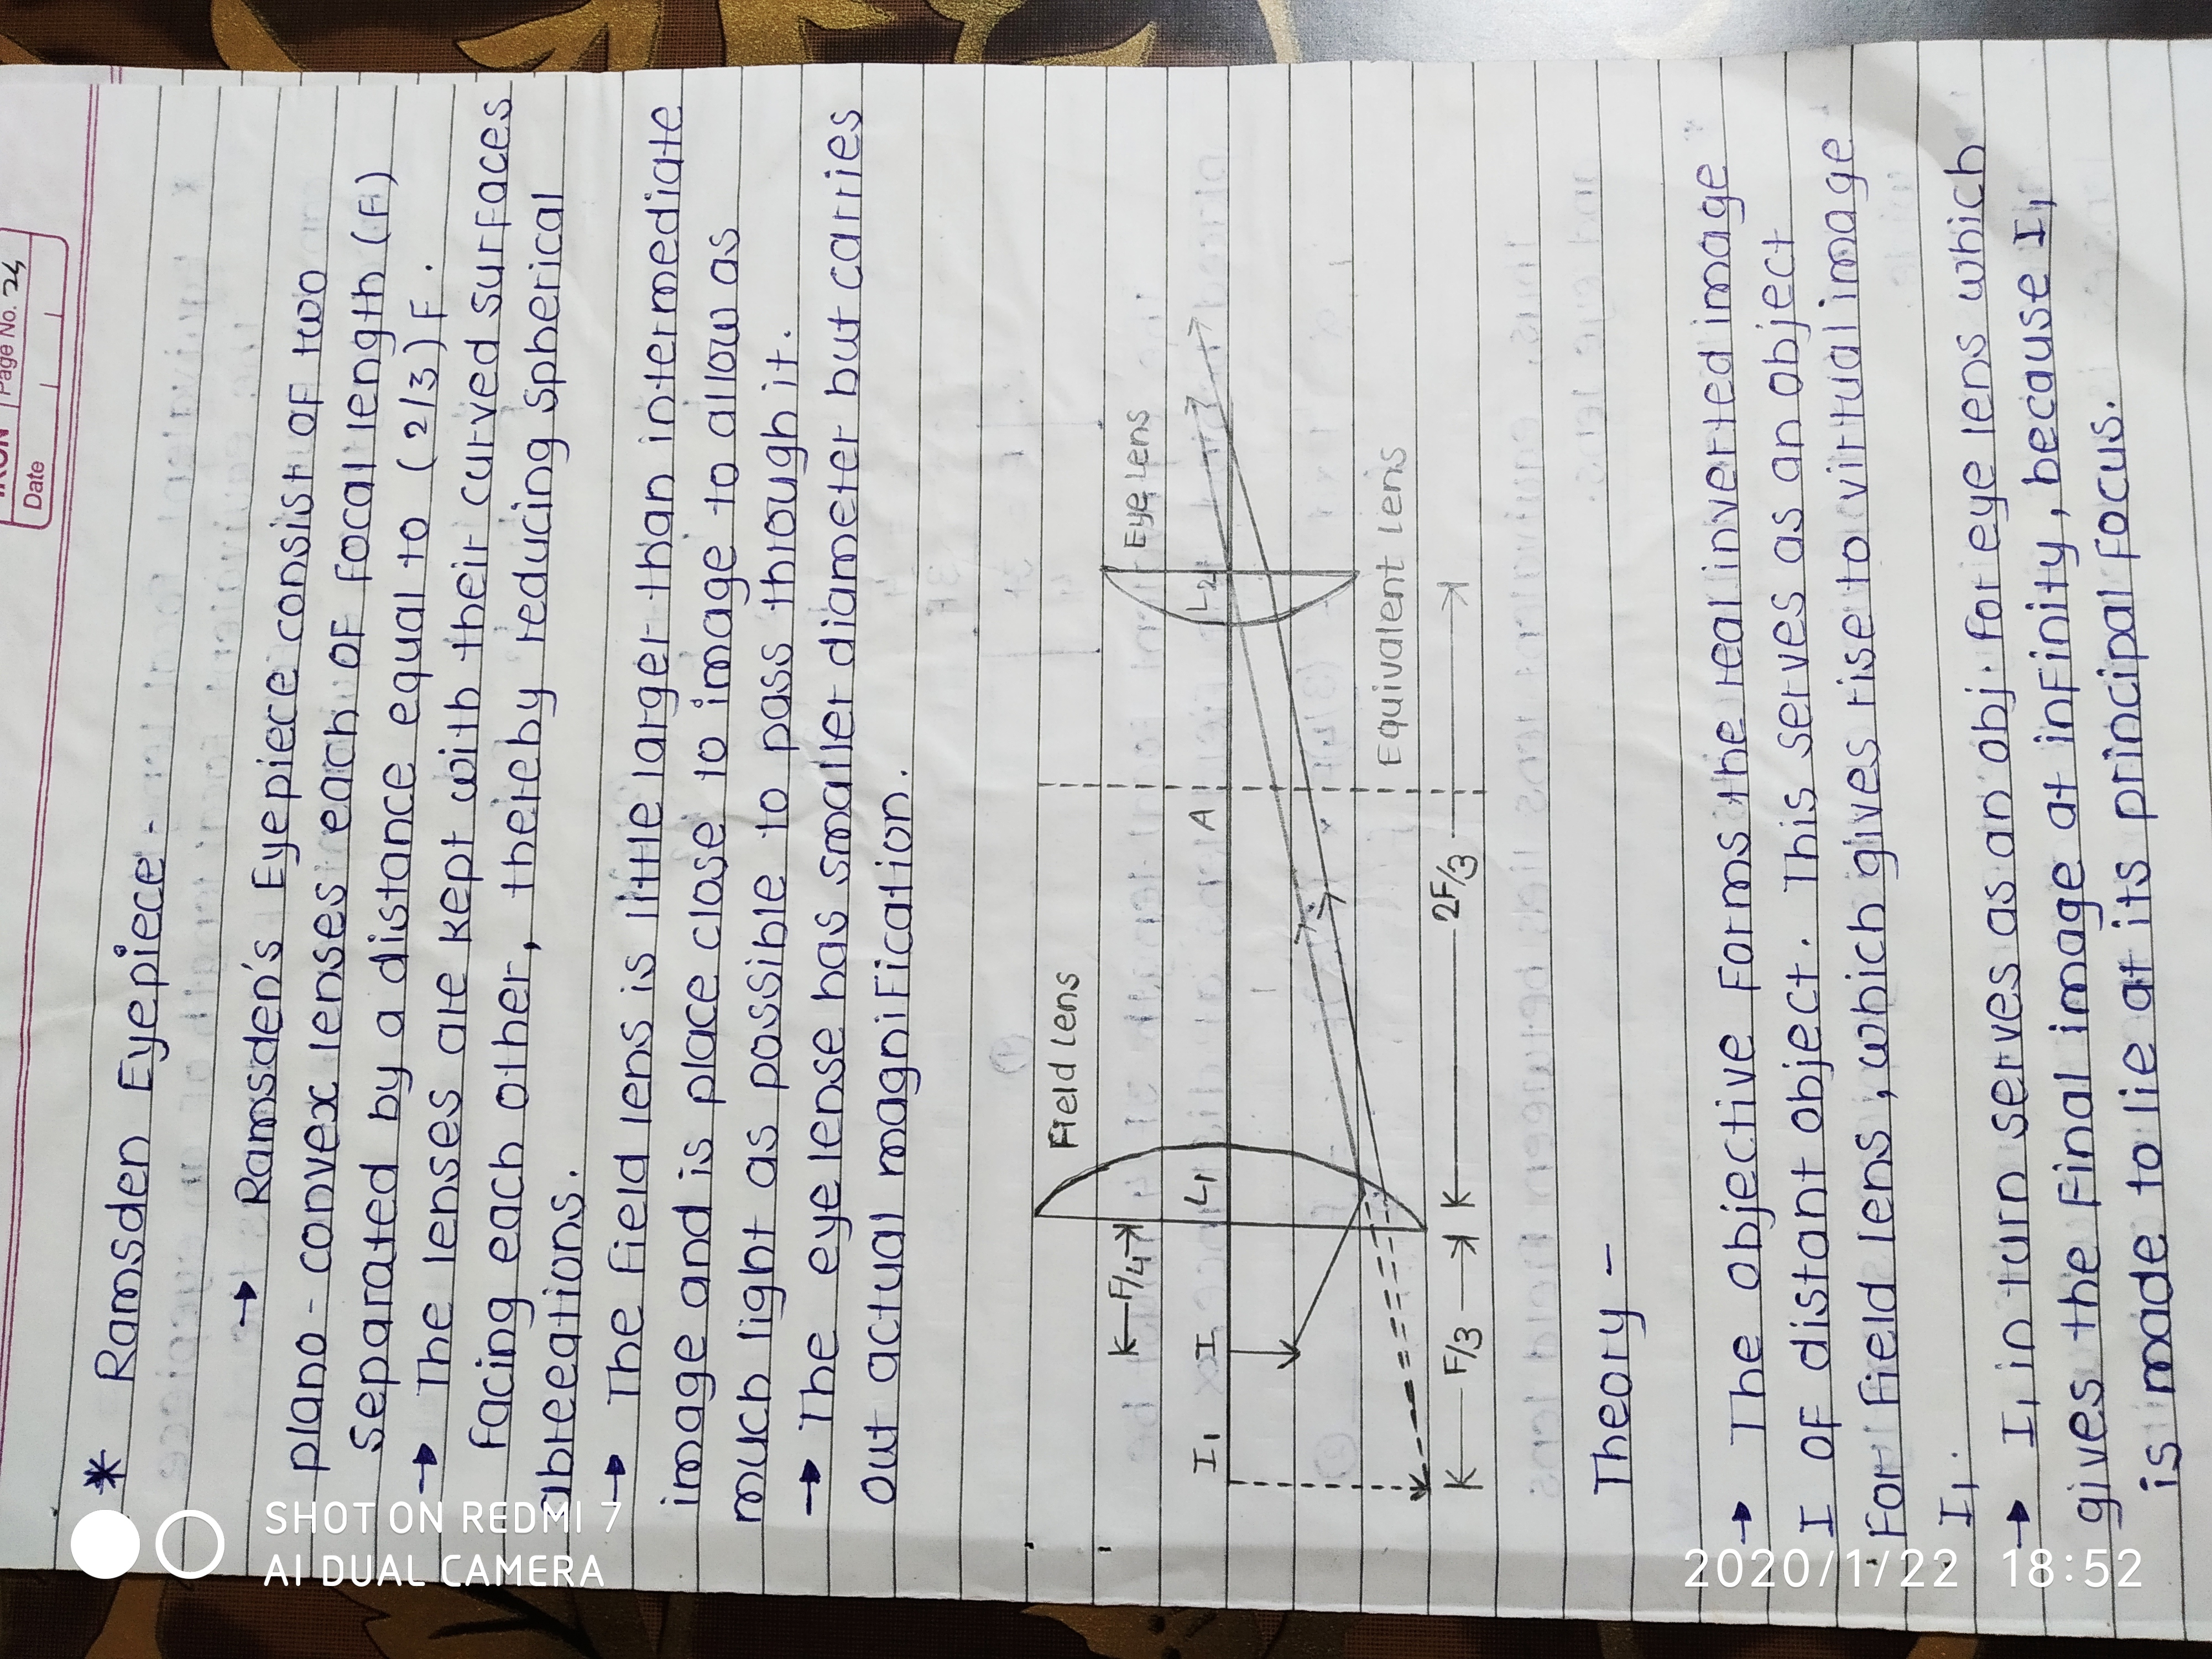 Page No. 24
Date
* Ramsden Eyepiece -
→ Ramsden's Eyepiece consist of two
plano - convex lenses each of focal length (F)
separated by a distance equal to (2/3) F.
→ The lenses are kept with their curved surfaces
facing each other, thereby reducing spherical
abreeations.
→ The field lens is little larger than intermediate
image and is place close to image to allow as
much light as possible to pass through it.
→ The eye lense has smaller diameter but carries
out actual magnification.
Field Lens
Eye Lens
F/4
I1 I L1 A L2
Equivalent Lens
F/3 2F/3
Theory -
→ The objective forms the real inverted image
I of distant object. This serves as an object
for field lens, which gives rise to virtual image
I1.
→ I1 in turn serves as an obj. for eye lens which
gives the final image at infinity, because I1
is made to lie at its principal focus.
SHOT ON REDMI 7
AI DUAL CAMERA
2020/1/22 18:52